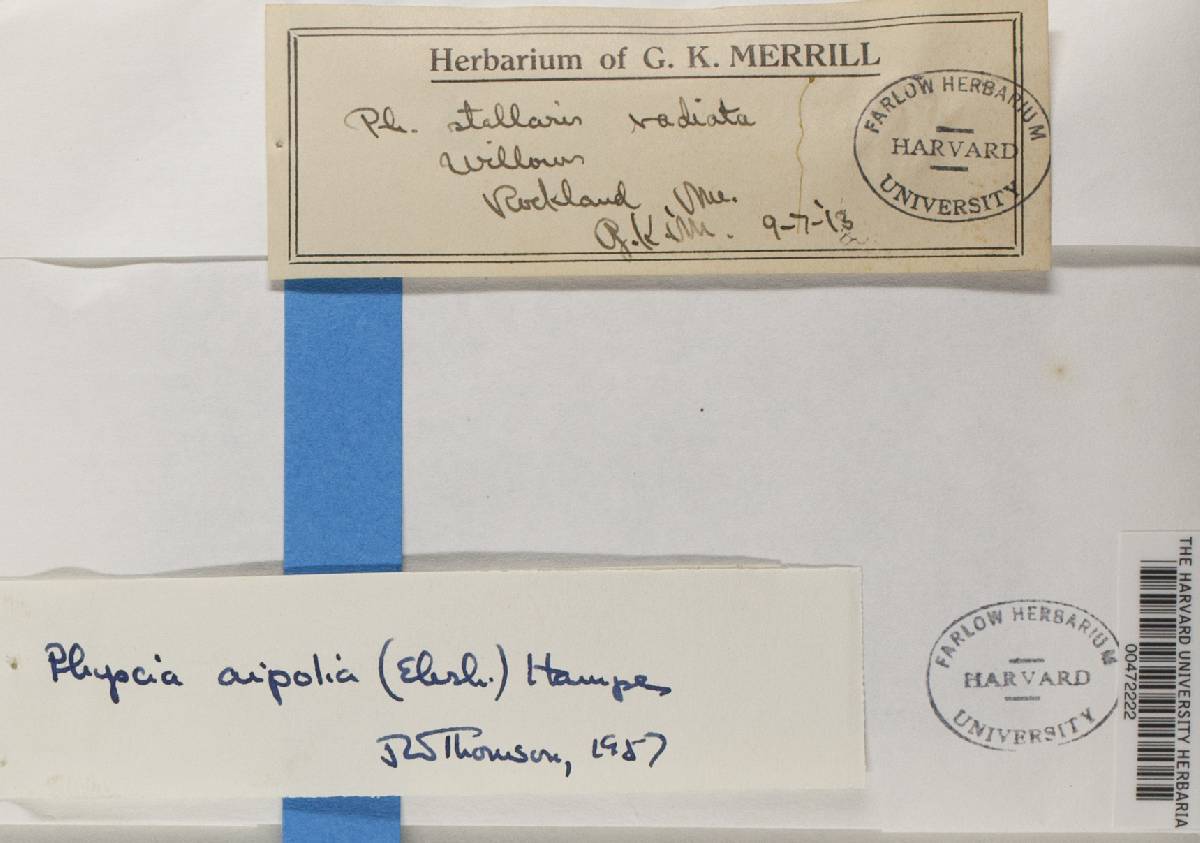 Herbarium of G. K. MERRILL
Ph. stellaris radiata
Willows
Rockland, Me.
G.K.M. 9-7-'13
FARLOW HERBARIUM
HARVARD
UNIVERSITY
Physcia aipolia (Ehrh.) Hampe
JWThomson, 1957
FARLOW HERBARIUM
HARVARD
UNIVERSITY
THE HARVARD UNIVERSITY HERBARIA
00472222